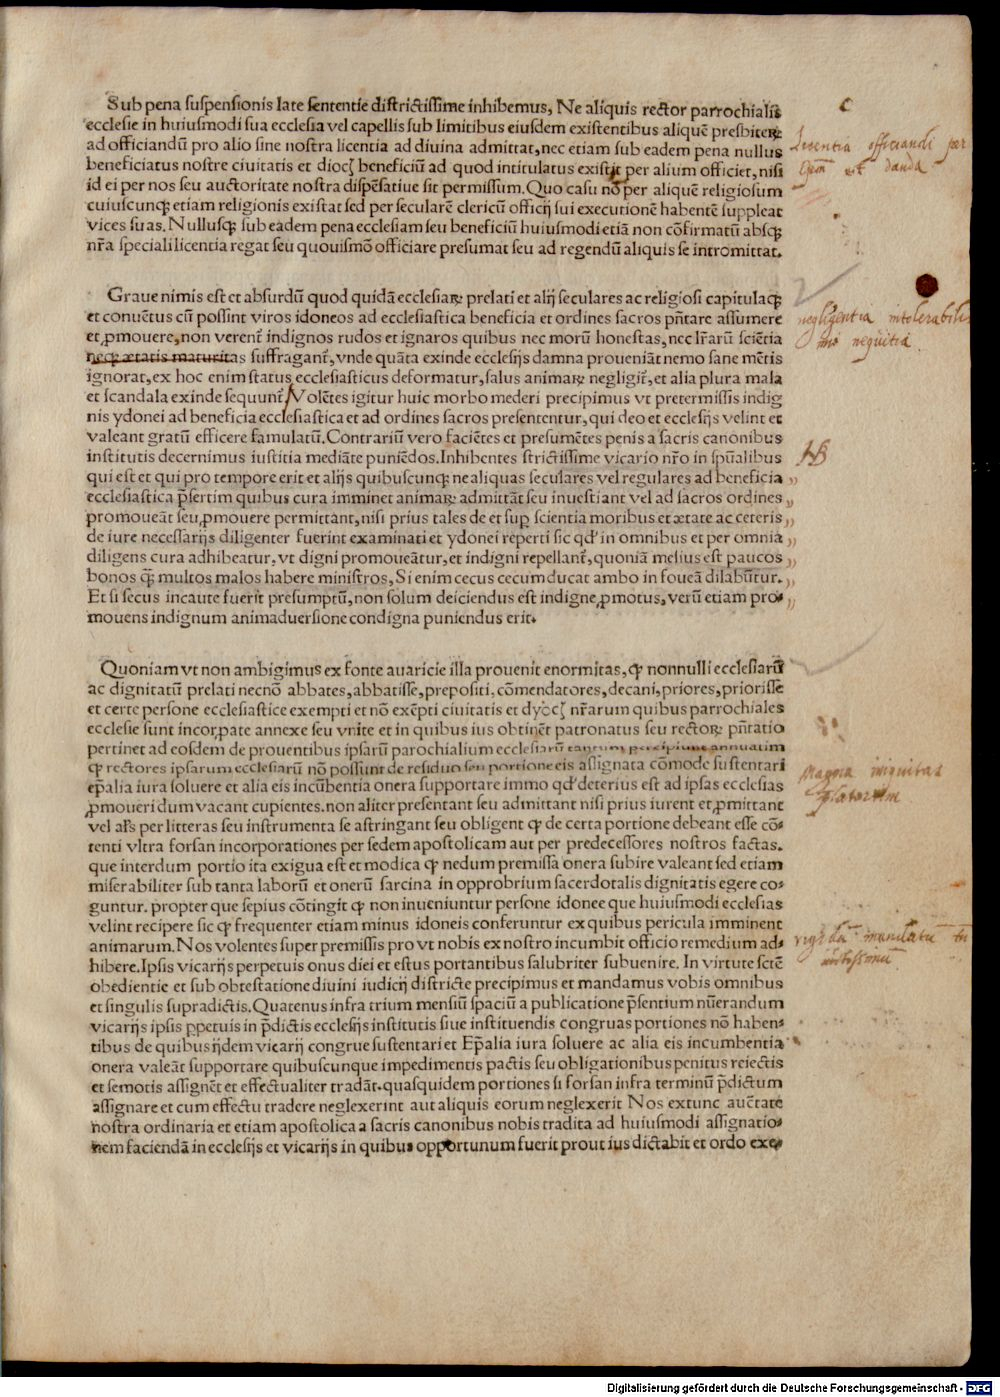 Sub pena suspensionis late sententie districtissime inhibemus, Ne aliquis rector parrochialis
ecclesie in huiusmodi sua ecclesia vel capellis sub limitibus eiusdem existentibus aliquē presbiteꝝ
ad officiandū pro alio sine nostra licentia ad diuina admittat, nec etiam sub eadem pena nullus
beneficiatus nostre ciuitatis et diocꝫ beneficiū ad quod intitulatus existit per alium officiet, nisi
id ei per nos seu auctoritate nostra dispēsatiue sit permissum. Quo casu nō per aliquē religiosum
cuiuscunqꝫ etiam religionis existat sed per secularē clericū officij sui executionē habentē suppleat
vices suas. Nullusqꝫ sub eadem pena ecclesiam seu beneficiū huiusmodi etiā non cōfirmatū absqꝫ
nr̄a speciali licentia regat seu quouismō officiare presumat seu ad regendū aliquis se intromittat.
Licentia officiandi per
Epm̄ est danda
Graue nimis est et absurdū quod quidā ecclesiaꝝ prelati et alij seculares ac religiosi capitulaqꝫ
et conuētus cū possint viros idoneos ad ecclesiastica beneficia et ordines sacros pn̄tare assumere
et ꝓmouere, non verent̄ indignos rudos et ignaros quibus nec morū honestas, nec lr̄arū sciētia
neqꝫ ætatis maturitas suffragant̄, vnde quāta exinde ecclesijs damna proueniāt nemo sane mētis
ignorat, ex hoc enim status ecclesiasticus deformatur, salus animaꝝ negligit̄, et alia plura mala
et scandala exinde sequunt̄ Volētes igitur huic morbo mederi precipimus vt pretermissis indig
nis ydonei ad beneficia ecclesiastica et ad ordines sacros presententur, qui deo et ecclesijs velint et
valeant gratū efficere famulatū. Contrariū vero faciētes et presumētes penis a sacris canonibus
institutis decernimus iustitia mediāte puniēdos. Inhibentes strictissime vicario nr̄o in spūalibus
qui est et qui pro tempore erit et alijs quibuscunqꝫ ne aliquas seculares vel regulares ad beneficia
ecclesiastica p̄sertim quibus cura imminet animaꝝ admittāt seu inuestiant vel ad sacros ordines
promoueāt seu ꝓmouere permittant, nisi prius tales de et sup̱ scientia moribus et ætate ac ceteris
de iure necessarijs diligenter fuerint examinati et ydonei reperti sic qd' in omnibus et per omnia
diligens cura adhibeatur, vt digni promoueātur, et indigni repellant̄, quoniā melius est paucos
bonos q̄ꝫ multos malos habere ministros, Si enim cecus cecum ducat ambo in foueā dilabūtur.
Et si secus incaute fuerit presumptū, non solum deiciendus est indigne ꝓmotus, verū etiam pro⸗
mouens indignum animaduersione condigna puniendus erit.
negligentia intolerabilis
imo nequitia
NB
Quoniam vt non ambigimus ex fonte auaricie illa prouenit enormitas, ꝙ nonnulli ecclesiarū
ac dignitatū prelati necnō abbates, abbatisse, prepositi, cōmendatores, decani, priores, priorisse
et certe persone ecclesiastice exempti et nō exēpti ciuitatis et dyoc̄ꝫ nr̄arum quibus parrochiales
ecclesie sunt incorꝑate annexe seu vnite et in quibus ius obtinēt patronatus seu rectoꝝ pn̄tatio
pertinet ad eosdem de prouentibus ipsarū parochialium ecclesiarū tantum percipiunt annuatim
ꝙ rectores ipsarum ecclesiarū nō possunt de residuo seu portione eis assignata cōmode sustentari
ep̄alia iura soluere et alia eis incūbentia onera supportare immo qd' deterius est ad ipsas ecclesias
ꝓmoueri dum vacant cupientes. non aliter presentant seu admittant nisi prius iurent et ꝓmittant
vel al's per litteras seu instrumenta se astringant seu obligent ꝙ de certa portione debeant esse cō⸗
tenti vltra forsan incorporationes per sedem apostolicam aut per predecessores nostros factas.
que interdum portio ita exigua est et modica ꝙ nedum premissa onera subire valeant sed etiam
miserabiliter sub tanta laborū et onerū sarcina in opprobrium sacerdotalis dignitatis egere co⸗
guntur. propter que sepius cōtingit ꝙ non inueniuntur persone idonee que huiusmodi ecclesias
velint recipere sic ꝙ frequenter etiam minus idoneis conferuntur ex quibus pericula imminent
animarum. Nos volentes super premissis pro vt nobis ex nostro incumbit officio remedium ad⸗
hibere. Ipsis vicarijs perpetuis onus diei et estus portantibus salubriter subuenire. In virtute sctē
obedientie et sub obtestatione diuini iudicij districte precipimus et mandamus vobis omnibus
et singulis supradictis. Quatenus infra trium mensiū spaciū a publicatione p̄sentium nūerandum
vicarijs ipsis ꝑpetuis in p̄dictis ecclesijs institutis siue instituendis congruas portiones nō haben⸗
tibus de quibus ijdem vicarij congrue sustentari et Ep̄alia iura soluere ac alia eis incumbentia
onera valeāt supportare quibuscunque impedimentis pactis seu obligationibus penitus reiectis
et semotis assignēt et effectualiter tradāt. quasquidem portiones si forsan infra terminū p̄dictum
assignare et cum effectu tradere neglexerint aut aliquis eorum neglexerit Nos extunc auctētate
nostra ordinaria et etiam apostolica a sacris canonibus nobis tradita ad huiusmodi assignatio⸗
nem faciendā in ecclesijs et vicarijs in quibus opportunum fuerit prout ius dictabit et ordo exe⸗
Magna iniquitas
p̄latorum
mandatū
iustissimū
Digitalisierung gefördert durch die Deutsche Forschungsgemeinschaft - DFG